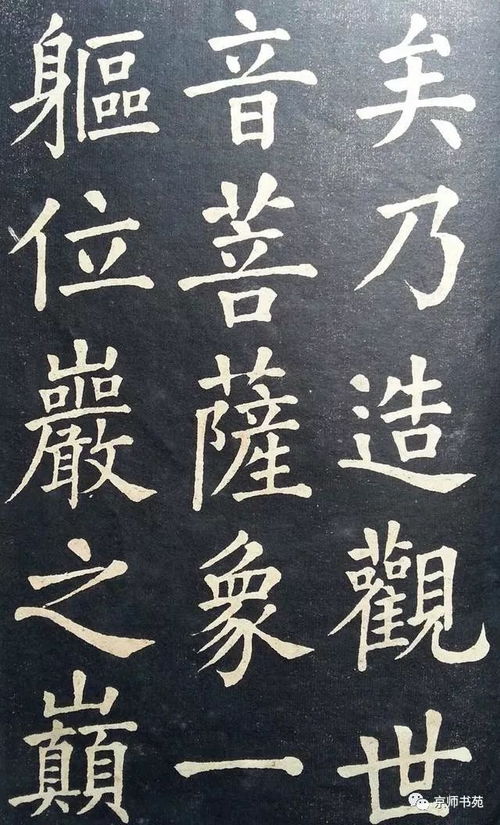 矣乃造觀世
音菩薩象一
軀位巖之巔
京师书苑